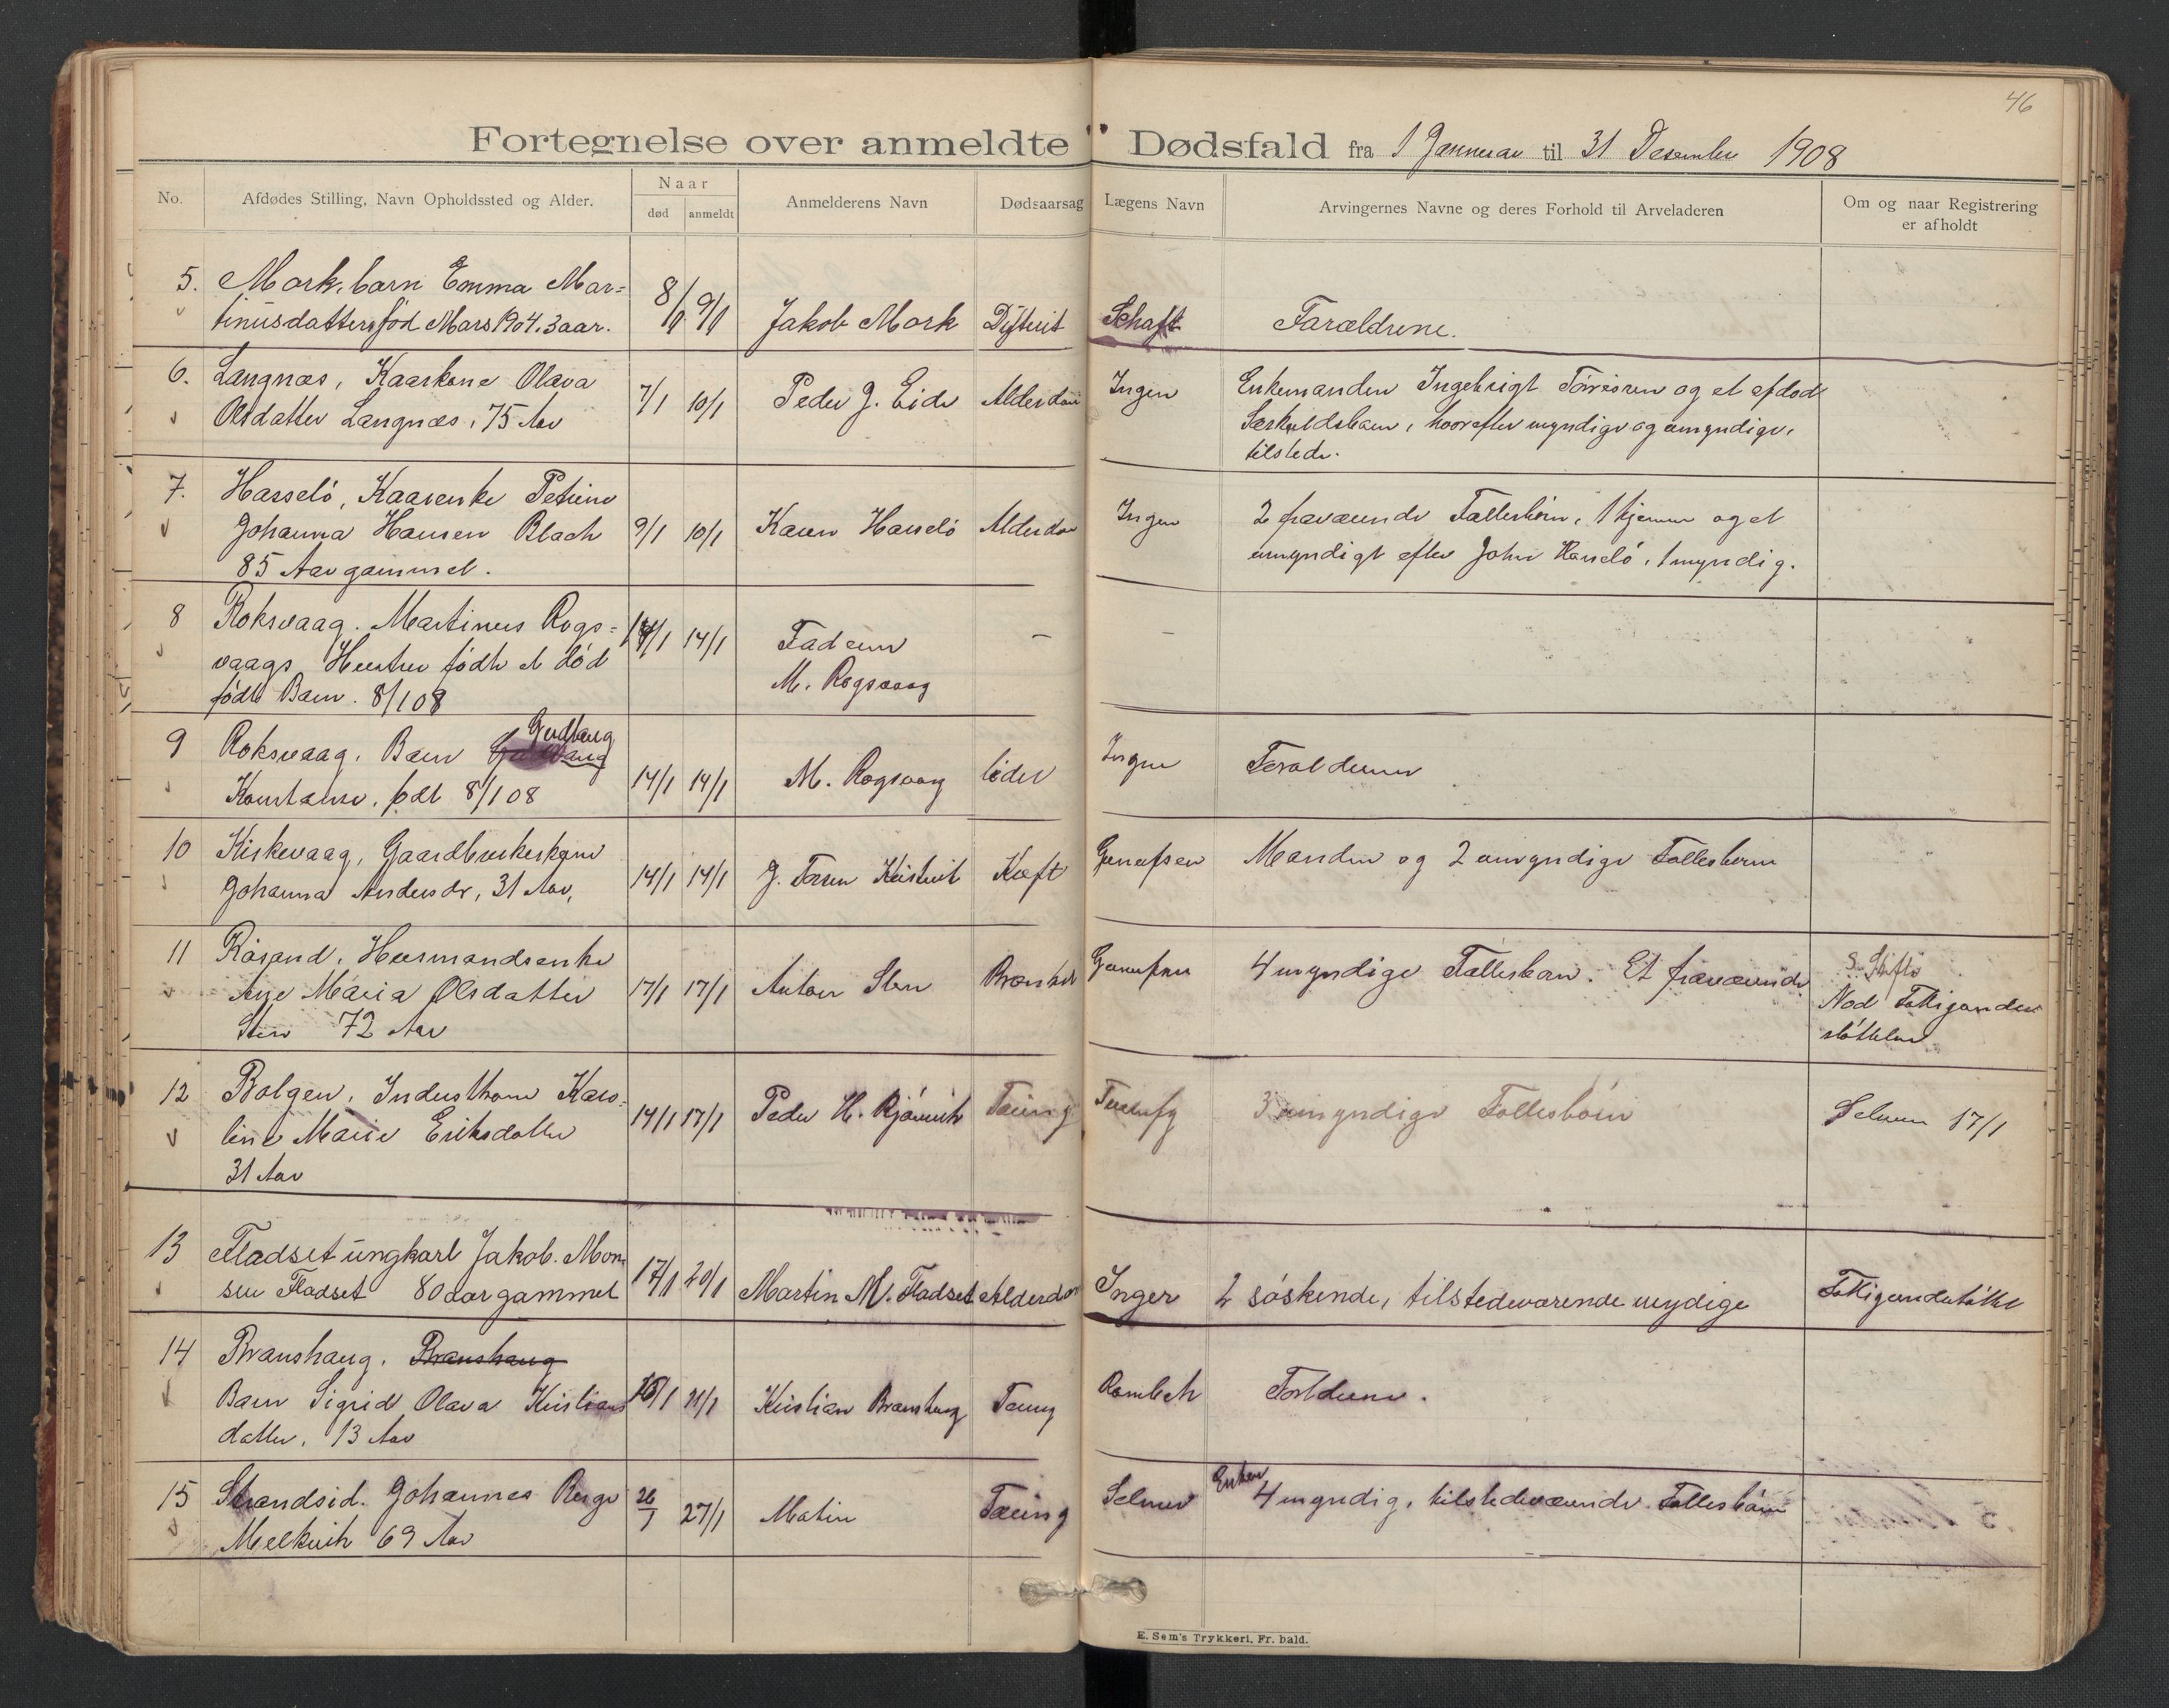 46
Fortegnelse over anmeldte Dødsfald fra 1 Januar til 31 Desember 1908
No.
Afdødes Stilling, Navn Opholdssted og Alder.
Naar
død
anmeldt
Anmelderens Navn
Dødsaarsag
Lægens Navn
Arvingernes Navne og deres Forhold til Arveladeren
Om og naar Registrering
er afholdt
5. Mork, barn Emma Mar=
tinusdatter, fød Mars 1904. 3 aar.
8/1 9/1
Jakob Mork
Dyfterit
Schaft
Forældrene.
6. Langnæs, Kaarkone Olava
Olsdatter Langnæs, 75 Aar
7/1 10/1
Peder J. Eide
Alderdom
Ingen
Enkemanden Ingebrigt og et afdød
Særkuldsbarn, hvorefter myndige og umyndige,
tilstede.
7. Hasselø, Kaarenke Petrine
Johanna Hansen Blach
85 Aar gammel.
9/1 10/1
Karen Hasselø
Alderdom
Ingen
2 fraværende Fællesbørn, 1 hjemme og et
umyndigt efter John Hasselø, 1 myndig.
8 Roksvaag. Martinus Rogs=
vaags Hustru fødte et død
født Barn. 8/1 08
14/1 14/1
Faderen
M. Rogsvaag
–
–
9 Roksvaag. Barn Gudbaug
Konstanse, født 8/1 08
14/1 14/1
M. Rogsvaag
Ingen
Forældrene
10 Kirkevaag, Gaardbrukerkone
Johanna Andersdr, 31 Aar,
14/1 14/1
Kræft
Manden og 2 umyndige Fællesbørn
11 Røsand, Husmandsenke
Ane Maria Olsdatter
Sten 72 Aar
17/1 17/1
Anton Sten
4 myndige Fællesbarn. Et fraværende
12 Bolgen, Inderstkone Karo=
line Marie Eriksdatter
31 Aar
14/1 17/1
Peder H. Bjørnvik
Tæring
3 umyndige Fællesbørn
17/1
13 Fladset ungkarl Jakob. Mon=
sen Fladset 80 aar gammel
17/1 20/1
Martin M. Fladset
Alderdom
Inger
2 søskende, tilstedeværende mydige
14 Branshaug. Branshaug
Barn Sigrid Olava Kristians
datter, 13 Aar
16/1 21/1
Kristian Branshaug
Tæring
Rambech
Forældrene.
15 Strandsid. Johannes Berge
Melkvik 69 Aar
26/1 27/1
Matin
Tæring
Selmer
Enken
4 myndig, tilstedeværende Fællesbørn
E. Sem's Trykkeri, Fr. hald.